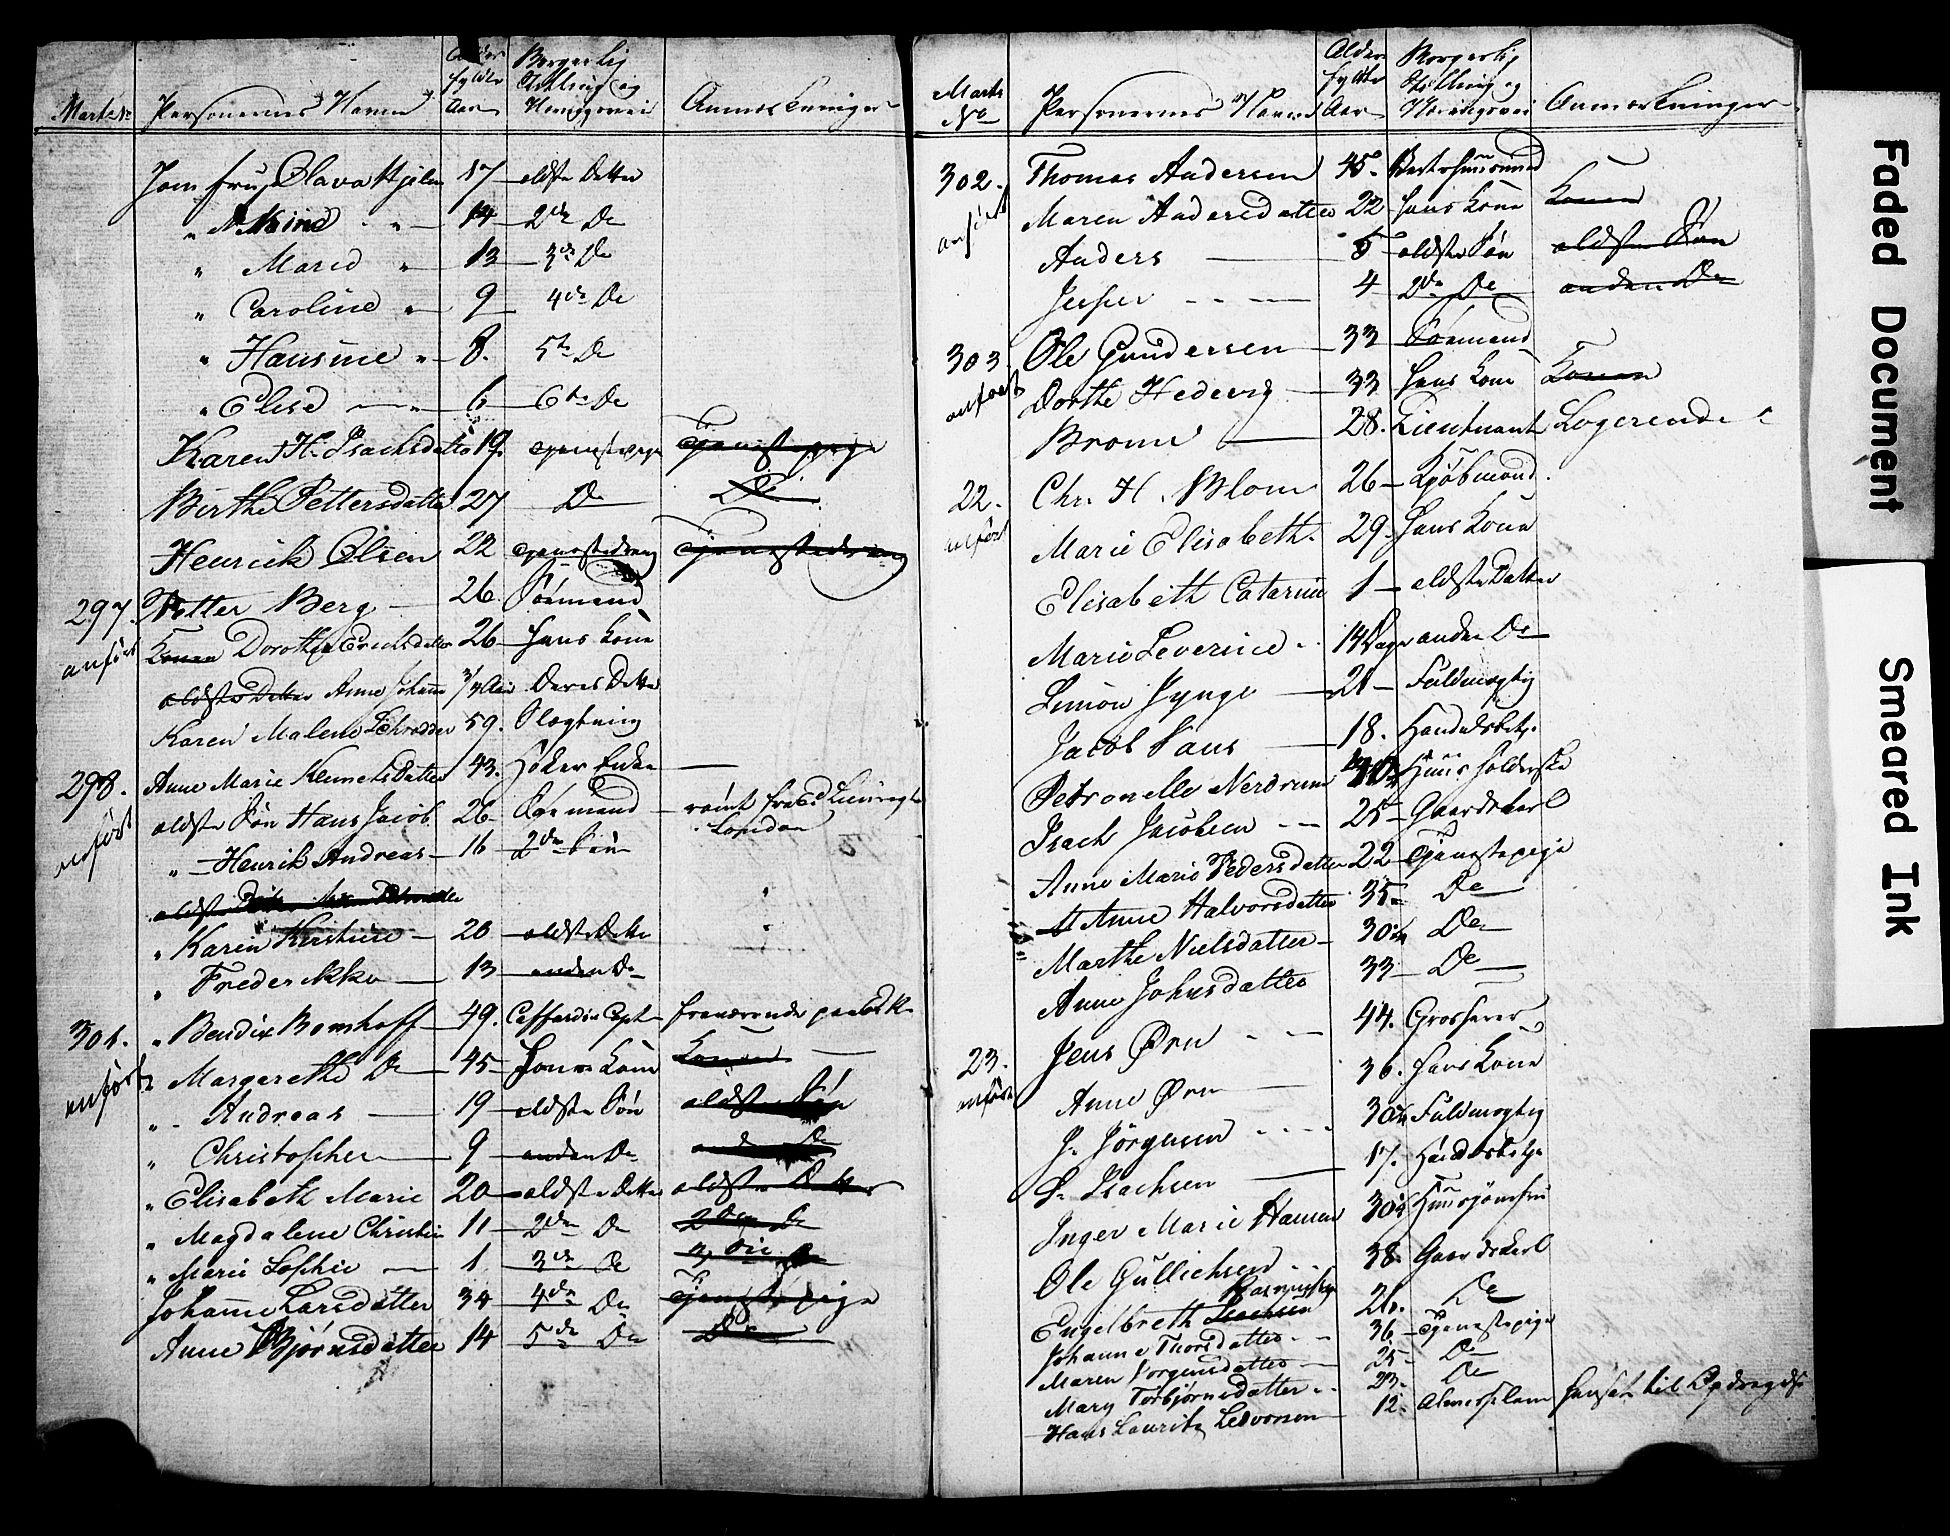 Matr. No Personernes Navne Alder fyldte Aar Borgerlig Stilling og Næringsvei Anmærkninger
Jomfrue Olava Hjelm 17 ældste Datter
" Mine " 14 2de Do
" Marie " 13 3de Do
" Caroline " 9 4de Do
" Hansine " 8. 5te Do
" Elise " 6 6te Do
Karen H. Isachsdatter 19. Tjenestepige Tjenestepige
Birthe Pettersdatter 27 Do Do
Henrick Olsen 22 Tjenestedreng Tjenestedreng
297. Petter Berg 26. Sømand
anført Konen Dorothea Erichsdatter 26 hans Kone
ældste Datter Anne Johanne Aar Deres Datter
Karen Malene Schrøder 59. Slægtning
298. Anne Marie Kennetsdatter 43. Høker Enke
anført ældste Søn Hans Jacob 26 Sømand
London
" Henrik Andreas 16 2den Søn
ældste
" Karen Kirstine 20 ældste Datter
" Frederikke 13 anden Do
301. " Bendix Bomhoff 49. Cofferdie Capt fraværende paa
anført Margerethe Do 45 hans Kone Konen
" Andreas 19 ældste Søn ældste Søn
" Christopher 9 anden Do anden Do
" Elisabeth Marie 20 ældste Datter ældste Datter
" Magdalene Christin 11 2den Do 2den Do
" Marie Sophie 1 3de Do 3die Do
Johanne Larsdatter 34 4de Do Tjenestepige
Anne Bjørnsdatter 14 5de Do Do
Matr. No Personernes Navne Alder fyldte Aar Borgerlig Stilling og Næringsvei Anmærkninger
302. Thomas Andersen 45
anført Maren Andersdatter 22 hans Kone Konen
Anders 5 ældste Søn ældste Søn
Jesper 4 2den Do anden Do
303 Ole Gundersen 33 Sømand
anført Dorthe Hedevig 33 hans Kone Konen
Bronn 28. Lieutnant Logerende
22. Chr. H. Blom 26 Kjøbmand.
anført Marie Elisabeth. 29. Hans Kone
Elisabeth Catarine 1 ældste Datter
Marie Severine 14 Dage anden Do
Simon Jynge 21 Fuldmægtig
Jacob Paus 18. Handelsbetj.
Petronelle Nerdrum 40 Huusholderske
Isach Jacobsen 25 Gaardskarl
Anne Marie Pedersdatter 22 Tjenestepige
Anne Halvorsdatter 35 Do
Marthe Nielsdatter 30 Do
Anne Johnsdatter 33 Do
23. Jens Ørn 44. Grosserer
anført Anne Ørn 36. hans Kone
P. Jörgensen 30 Fuldmægtig
P. Isachsen 17. Handelsbetje
Inger Marie Hansen 30 Huusjomfru
Ole Gullichsen 38. Gaardskarl
Rasmussen
Engelbreth Isachsen 26. Do
Johanne Thorsdatter 36 Tjenestepige
Maren Jorgensdatter 25 Do
Mary Torbjørnsdatter 23. Do
Hans Lauritz 12. Almisselem hensat til Opdragelse
Faded Document
Smeared Ink